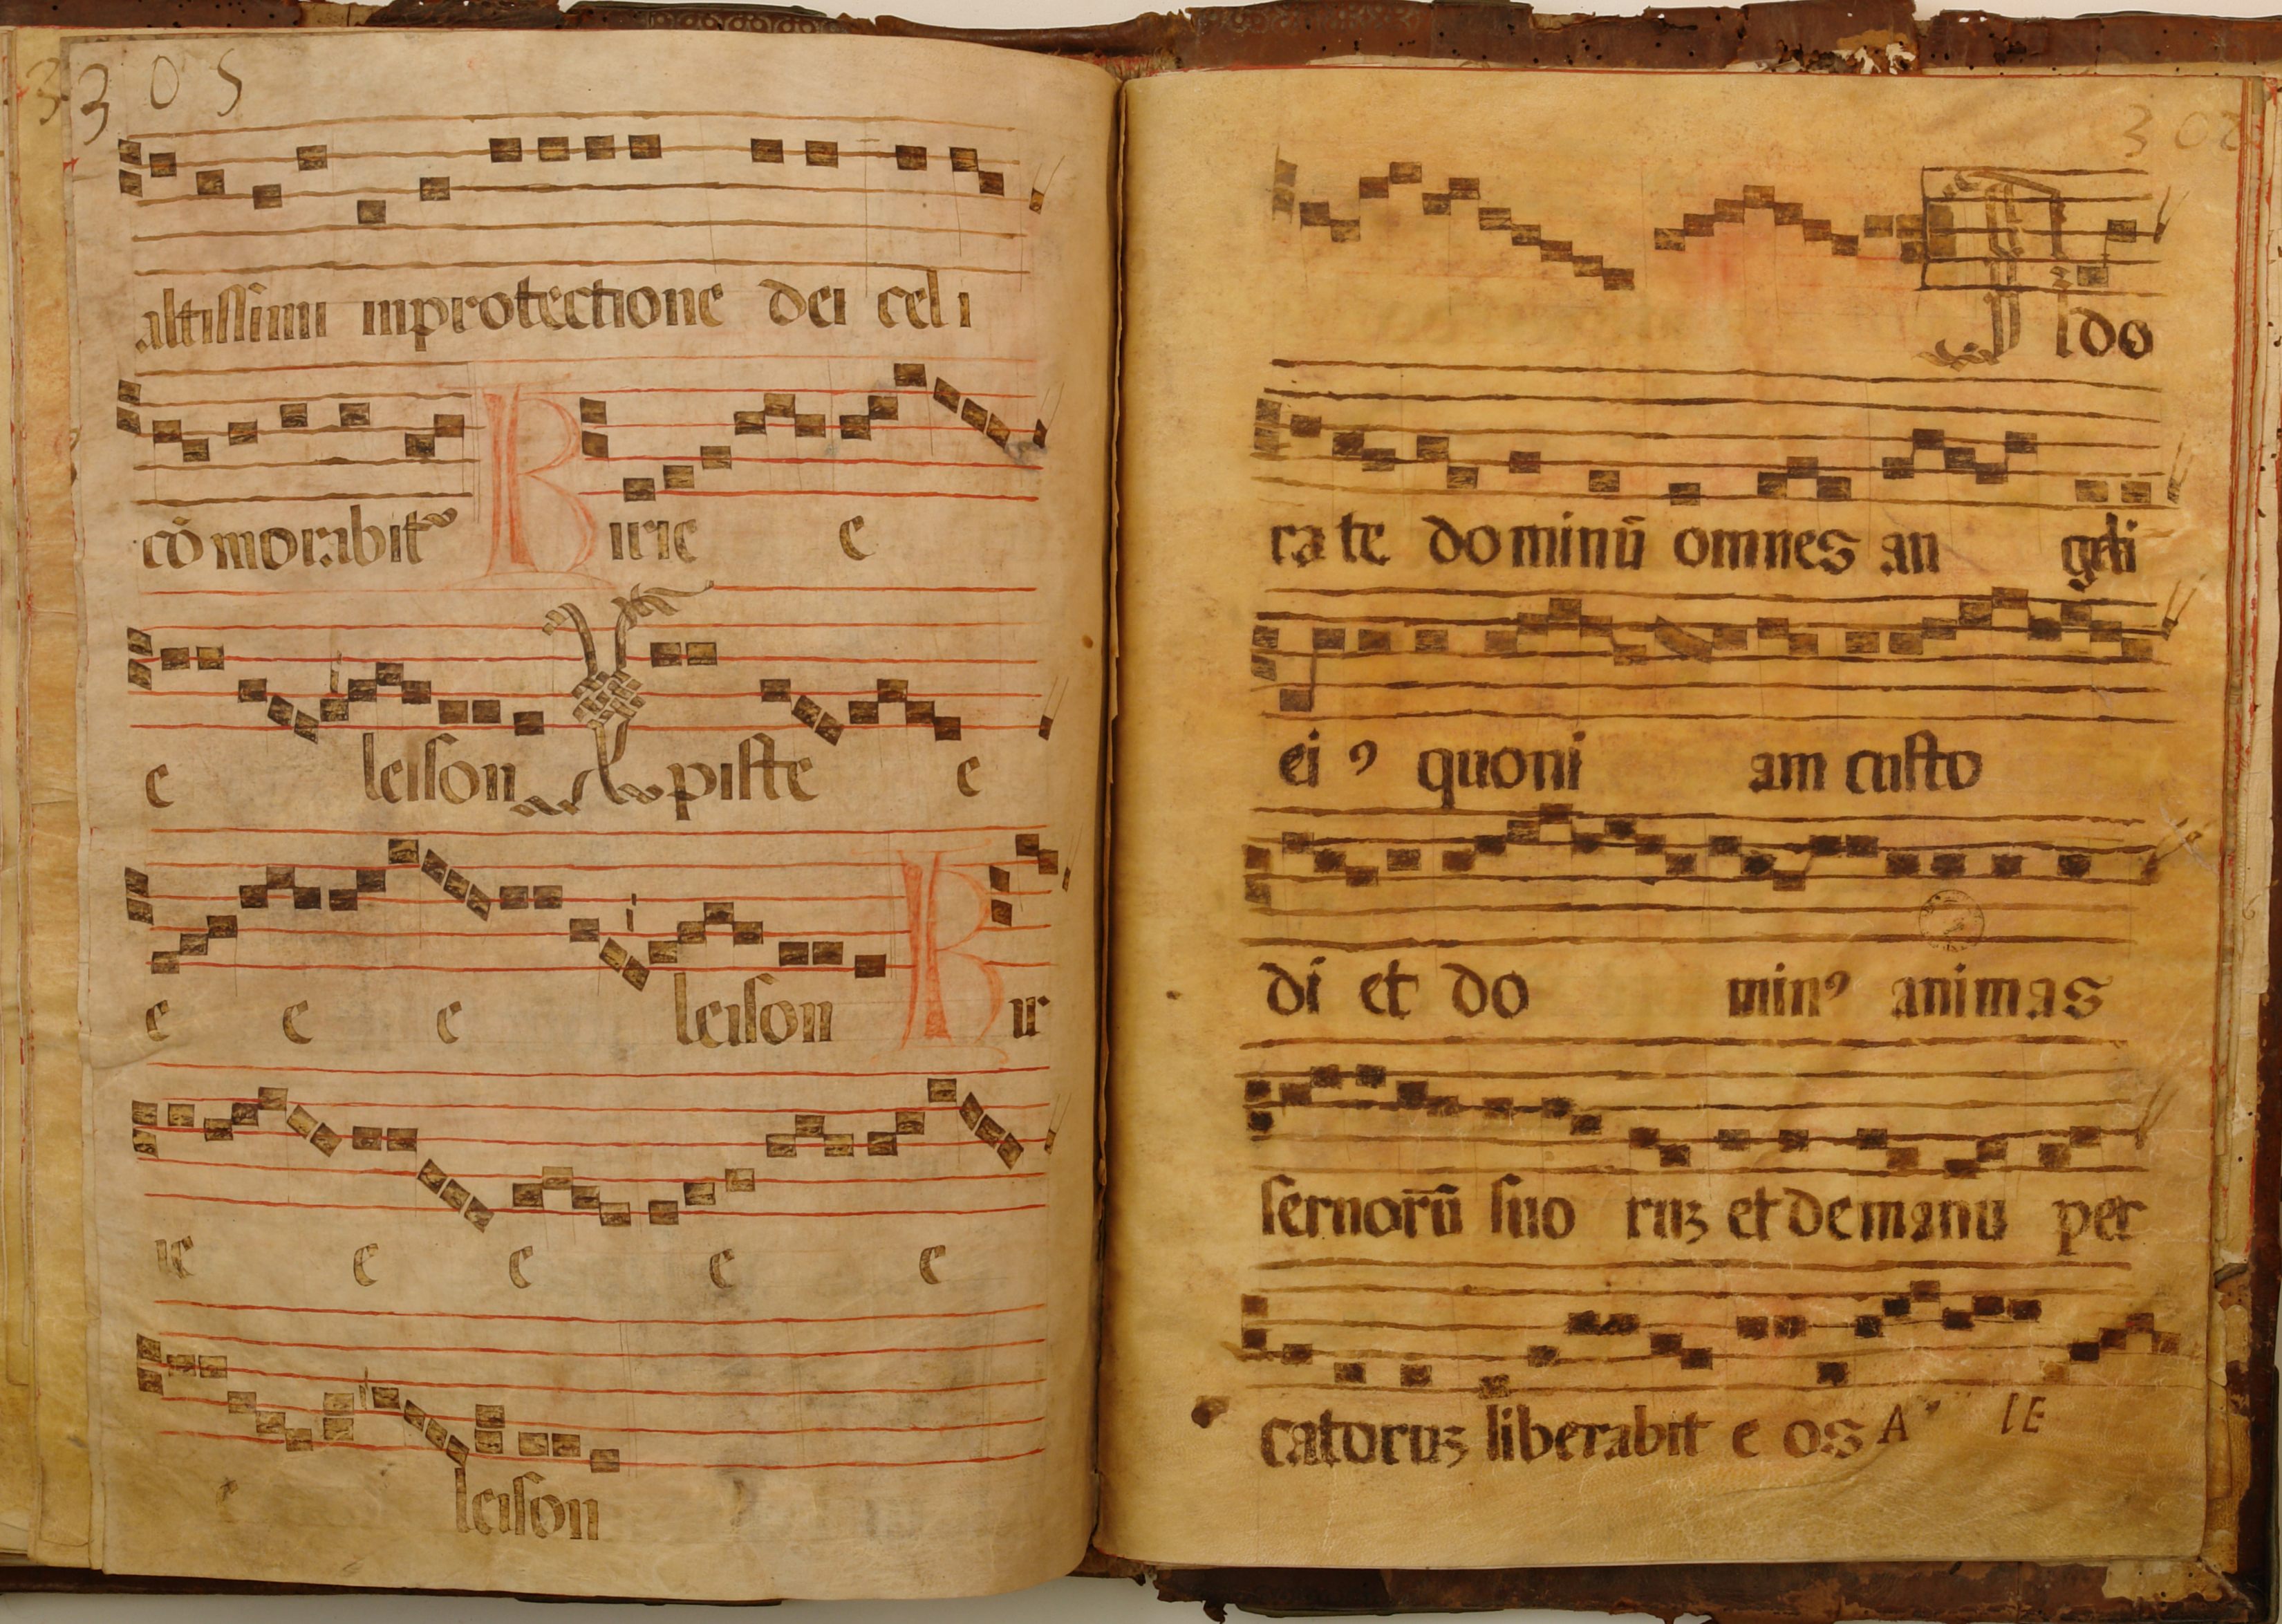 3 3 0 5
altissimi inprotectione dei celi
cōmorabit Kirie e
e leison Xpiste e
e e e leison Kir
ie e e e e
e leison
302
Ado
rate dominū omnes an geli
ei9 quoni am custo
di et do min9 animas
seruorū suo ruꝫ et de manu pec
catoruꝫ liberabit e os A IE